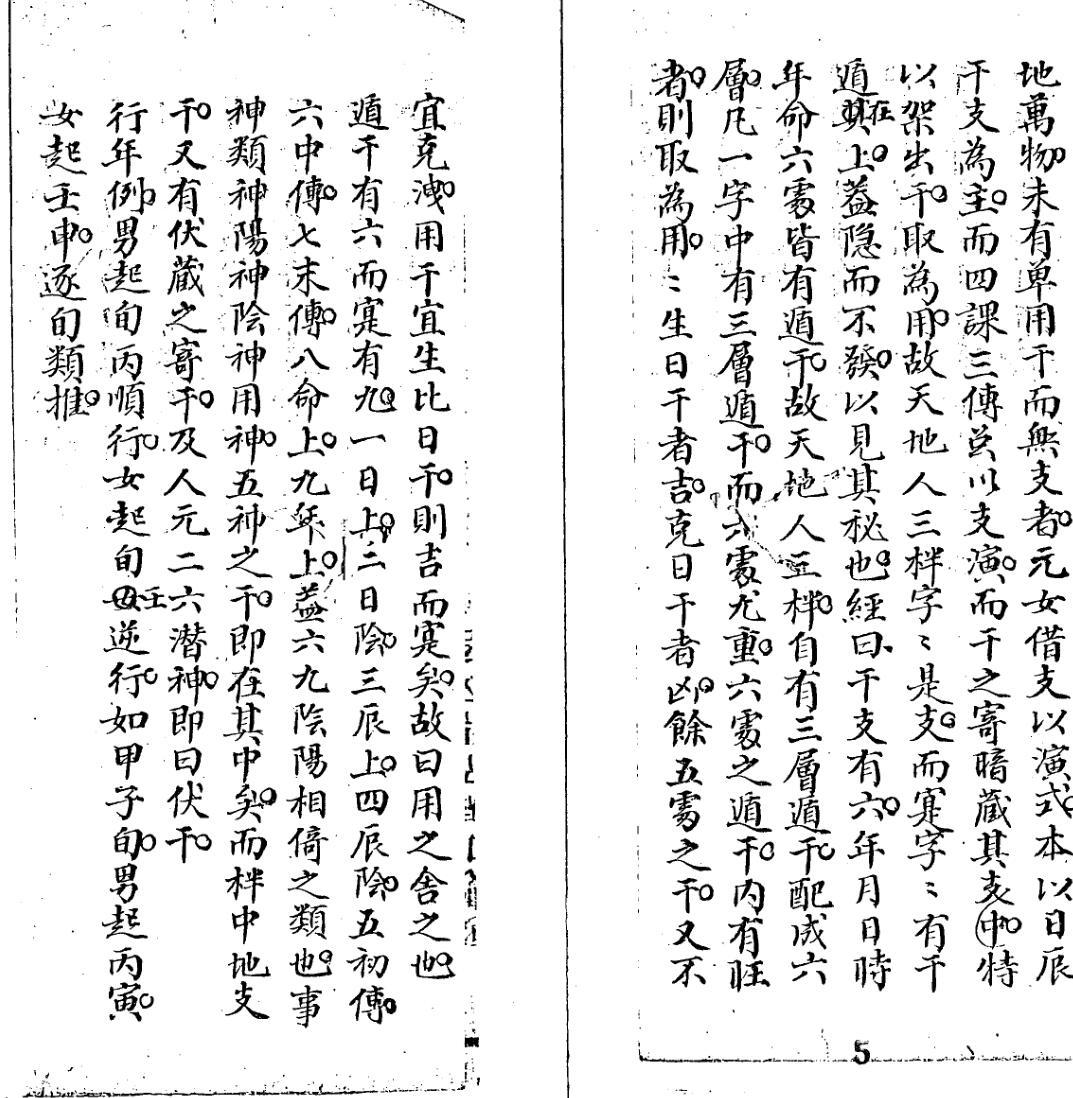 地萬物。未有單用干而無支者。元女借支以演式。本以日辰
干支為主。而四課三傳並以支演。而干之寄暗藏其支中。特
以架出干。取為用。故天地人三柈字〻是支。而寔字〻有干
遁在其上。葢隐而不發。以見其秘也。經曰。干支有六。年月日時
年命六處皆有遁干。故天地人三柈。自有三層遁干。配成六
層。凡一字中有三層遁干。而六處尤重。六處之遁干。內有旺
者。則取為用。〻生日干者吉。克日干者凶。餘五處之干。又不
宜克洩。用干宜生比日干。則吉而寔矣。故曰用之舍之也。
遁干有六而寔有九。一日上。二日陰。三辰上。四辰陰。五初傳。
六中傳。七末傳。八命上。九年上。葢六九陰陽相倚之類也。事
神類神陽神陰神用神。五神之干。即在其中矣。而柈中地支
干。又有伏藏之寄干。及人元二六潜神。即曰伏干。
行年例。男起旬丙順行。女起旬壬逆行。如甲子旬。男起丙寅。
女起壬申。逐旬類推。
5